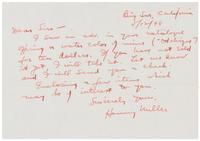 Big Sur, California
2/12/44
Dear Sirs —
I saw an ad. in your catalogue
giving a water color of mine
for ten dollars. If you have not sold
it yet, I will take it. Let me know
and I will send you a check.
Enclosing a few items which
may be of interest to you.
Sincerely yours,
Henry Miller